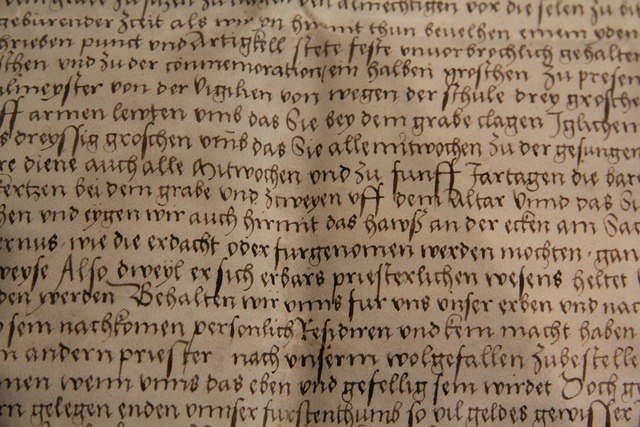 zu almechtigen vor die selen zu
geburender Zceit als wir yn hirmit thun bevelhen einem yden
hrieben punct und Artigkell stete feste unvorbrochlich gehalten
schen und zu der commemoration ein halben groschen zu presen
ulmeyster von der Vigilien von wegen der schule drey grosche
ff armen lewten umb das Sie bey dem grabe clagen Iglichen
s dreyssig groschen umb das Sie alle mitwochen zu der gesungen
re diene auch alle Mitwochen und zu funff Jartagen die bare
kertzen bei dem grabe und zweyen uff dem Altar Unnd das Si
hen und eygen wir auch hirmit das hawß an der ecken am Sac
ernus wie die erdacht oder furgenomen werden mochten gan
weyse Also dweyl er sich erbars priesterlichen wesens heltet
den werden Behalten wir unns fur uns unser erben und nac
sein nachkomen personlich Residiren und kein macht haben
n andern priester nach unserm wolgefallen zubestelle
men wenn unns das eben und gefellig sein wirdet Doch g
rn gelegen enden unnser furstenthumb so vil geldes gewisser